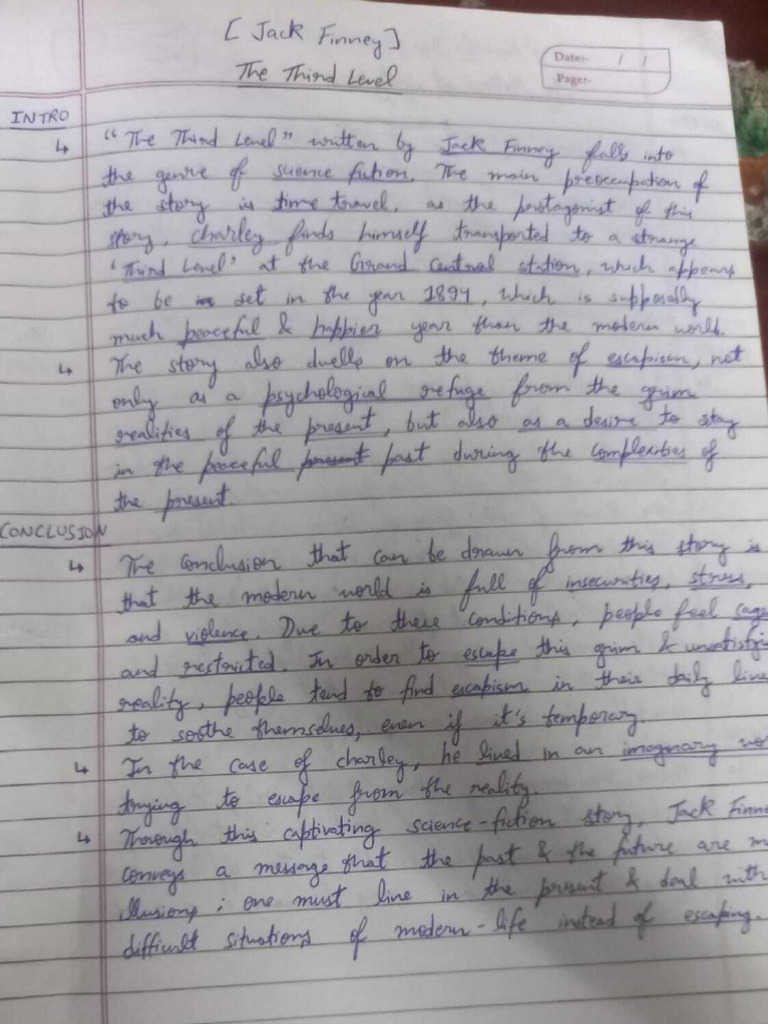 [ Jack Finney ]
The Third Level
Date:- / /
Page:-
INTRO
↳ "The Third Level" written by Jack Finney falls into
the genre of science fiction. The main preoccupation of
the story is time travel, as the protagonist of this
story, charley finds himself transported to a strange
'Third Level' at the Grand Central station, which appears
to be set in the year 1894, which is supposably
much peaceful & happier year than the modern world.
↳ The story also dwells on the theme of escapism, not
only as a psychological refuge from the grim
realities of the present, but also as a desire to stay
in the peaceful present past during the complexities of
the present.
CONCLUSION
↳ The conclusion that can be drawn from this story is
that the modern world is full of insecurities, stress,
and violence. Due to these conditions, people feel
and restricted. In order to escape this grim &
reality, people tend to find escapism in their daily
to soothe themselves, even if it's temporary.
↳ In the case of charley, he lived in an imaginary
trying to escape from the reality.
↳ Through this captivating science-fiction story, Jack
conveys a message that the past & the future are
illusions; one must live in the present & deal with
difficult situations of modern-life instead of escaping.